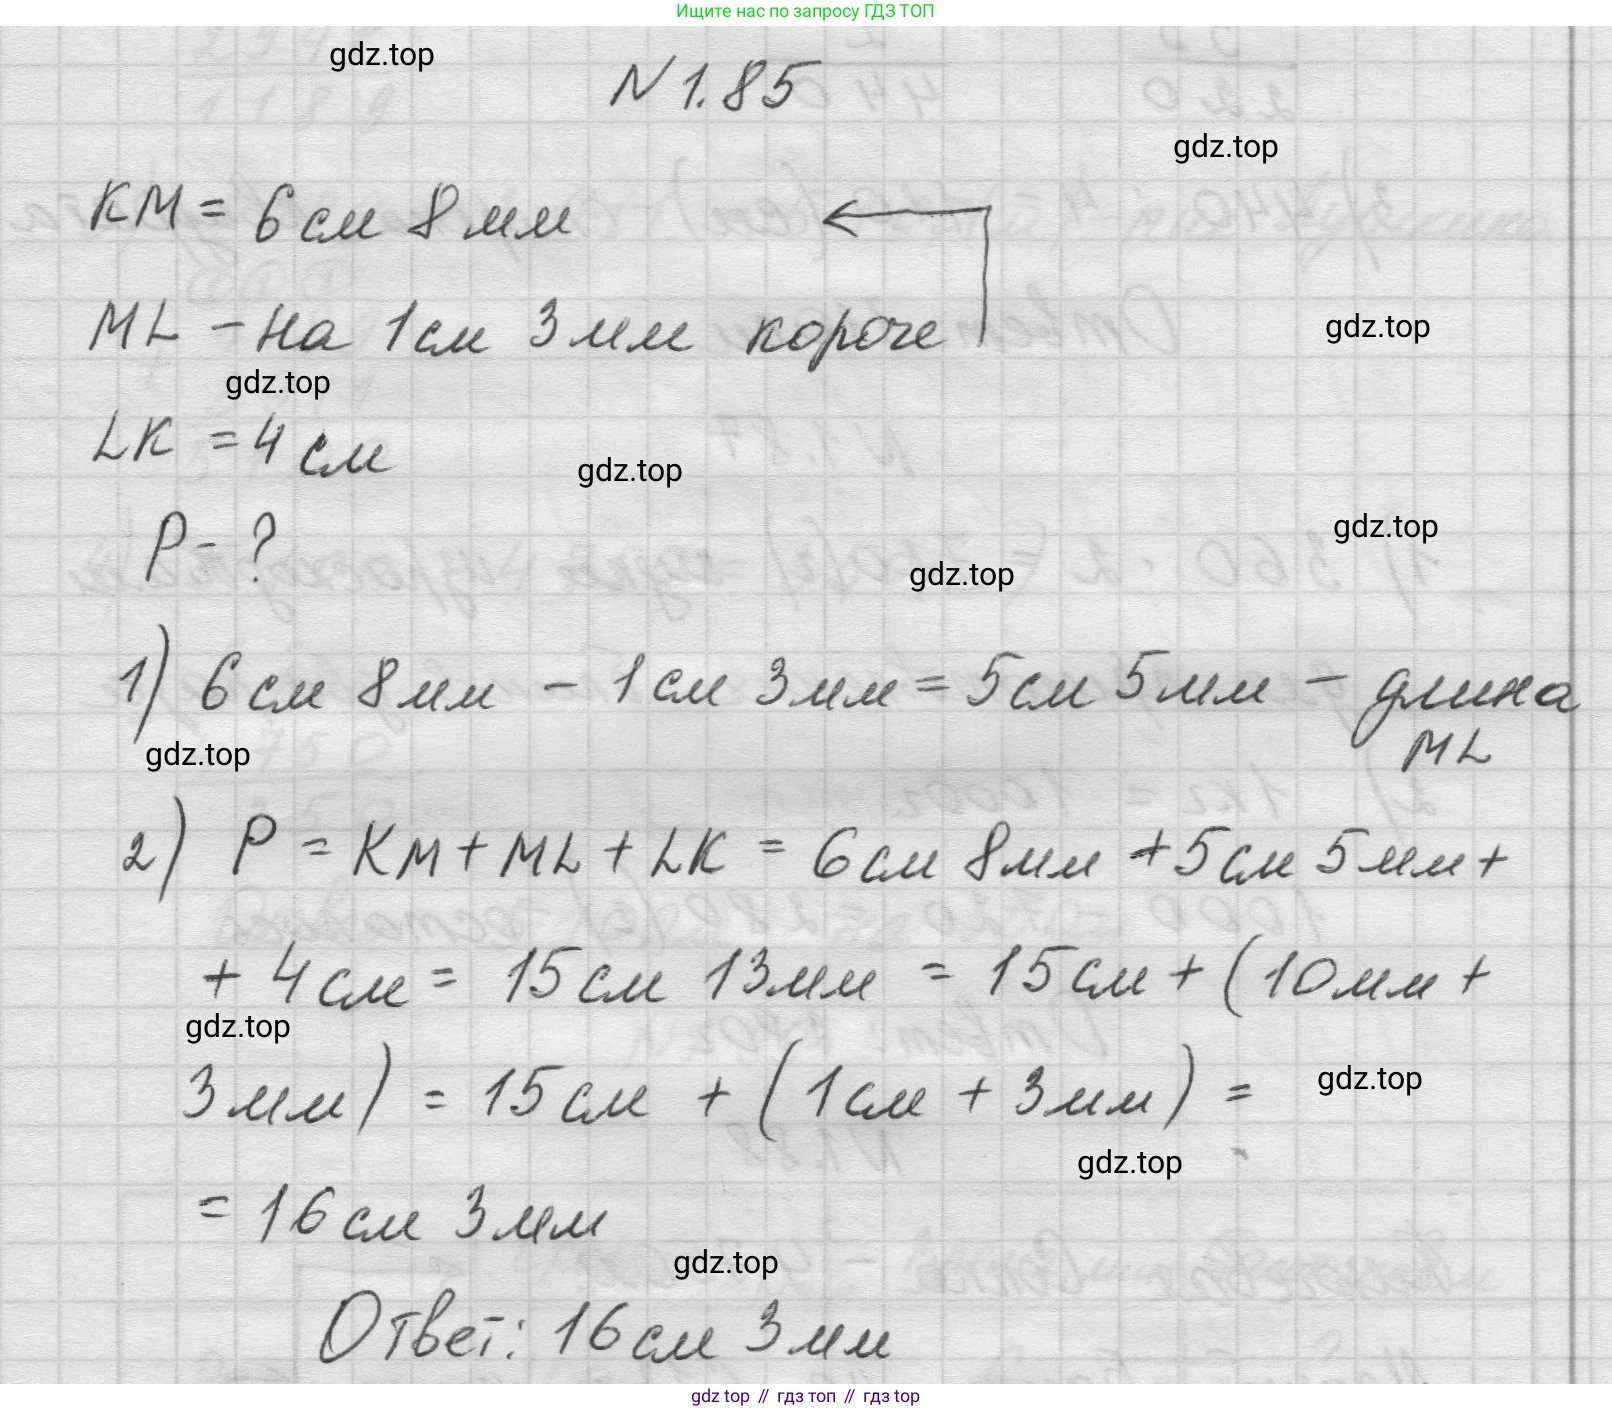 Ищите нас по запросу ГДЗ ТОП
gdz.top
N 1.85
gdz.top
KM = 6 см 8 мм
ML – на 1 см 3 мм короче
gdz.top
gdz.top
LK = 4 см
gdz.top
P - ?
gdz.top
gdz.top
1) 6 см 8 мм – 1 см 3 мм = 5 см 5 мм – длина
ML
gdz.top
2) P = KM + ML + LK = 6 см 8 мм + 5 см 5 мм +
+ 4 см = 15 см 13 мм = 15 см + (10 мм +
gdz.top
3 мм) = 15 см + (1 см + 3 мм) =
gdz.top
gdz.top
= 16 см 3 мм
gdz.top
Ответ: 16 см 3 мм
gdz top // гдз топ // гдз top